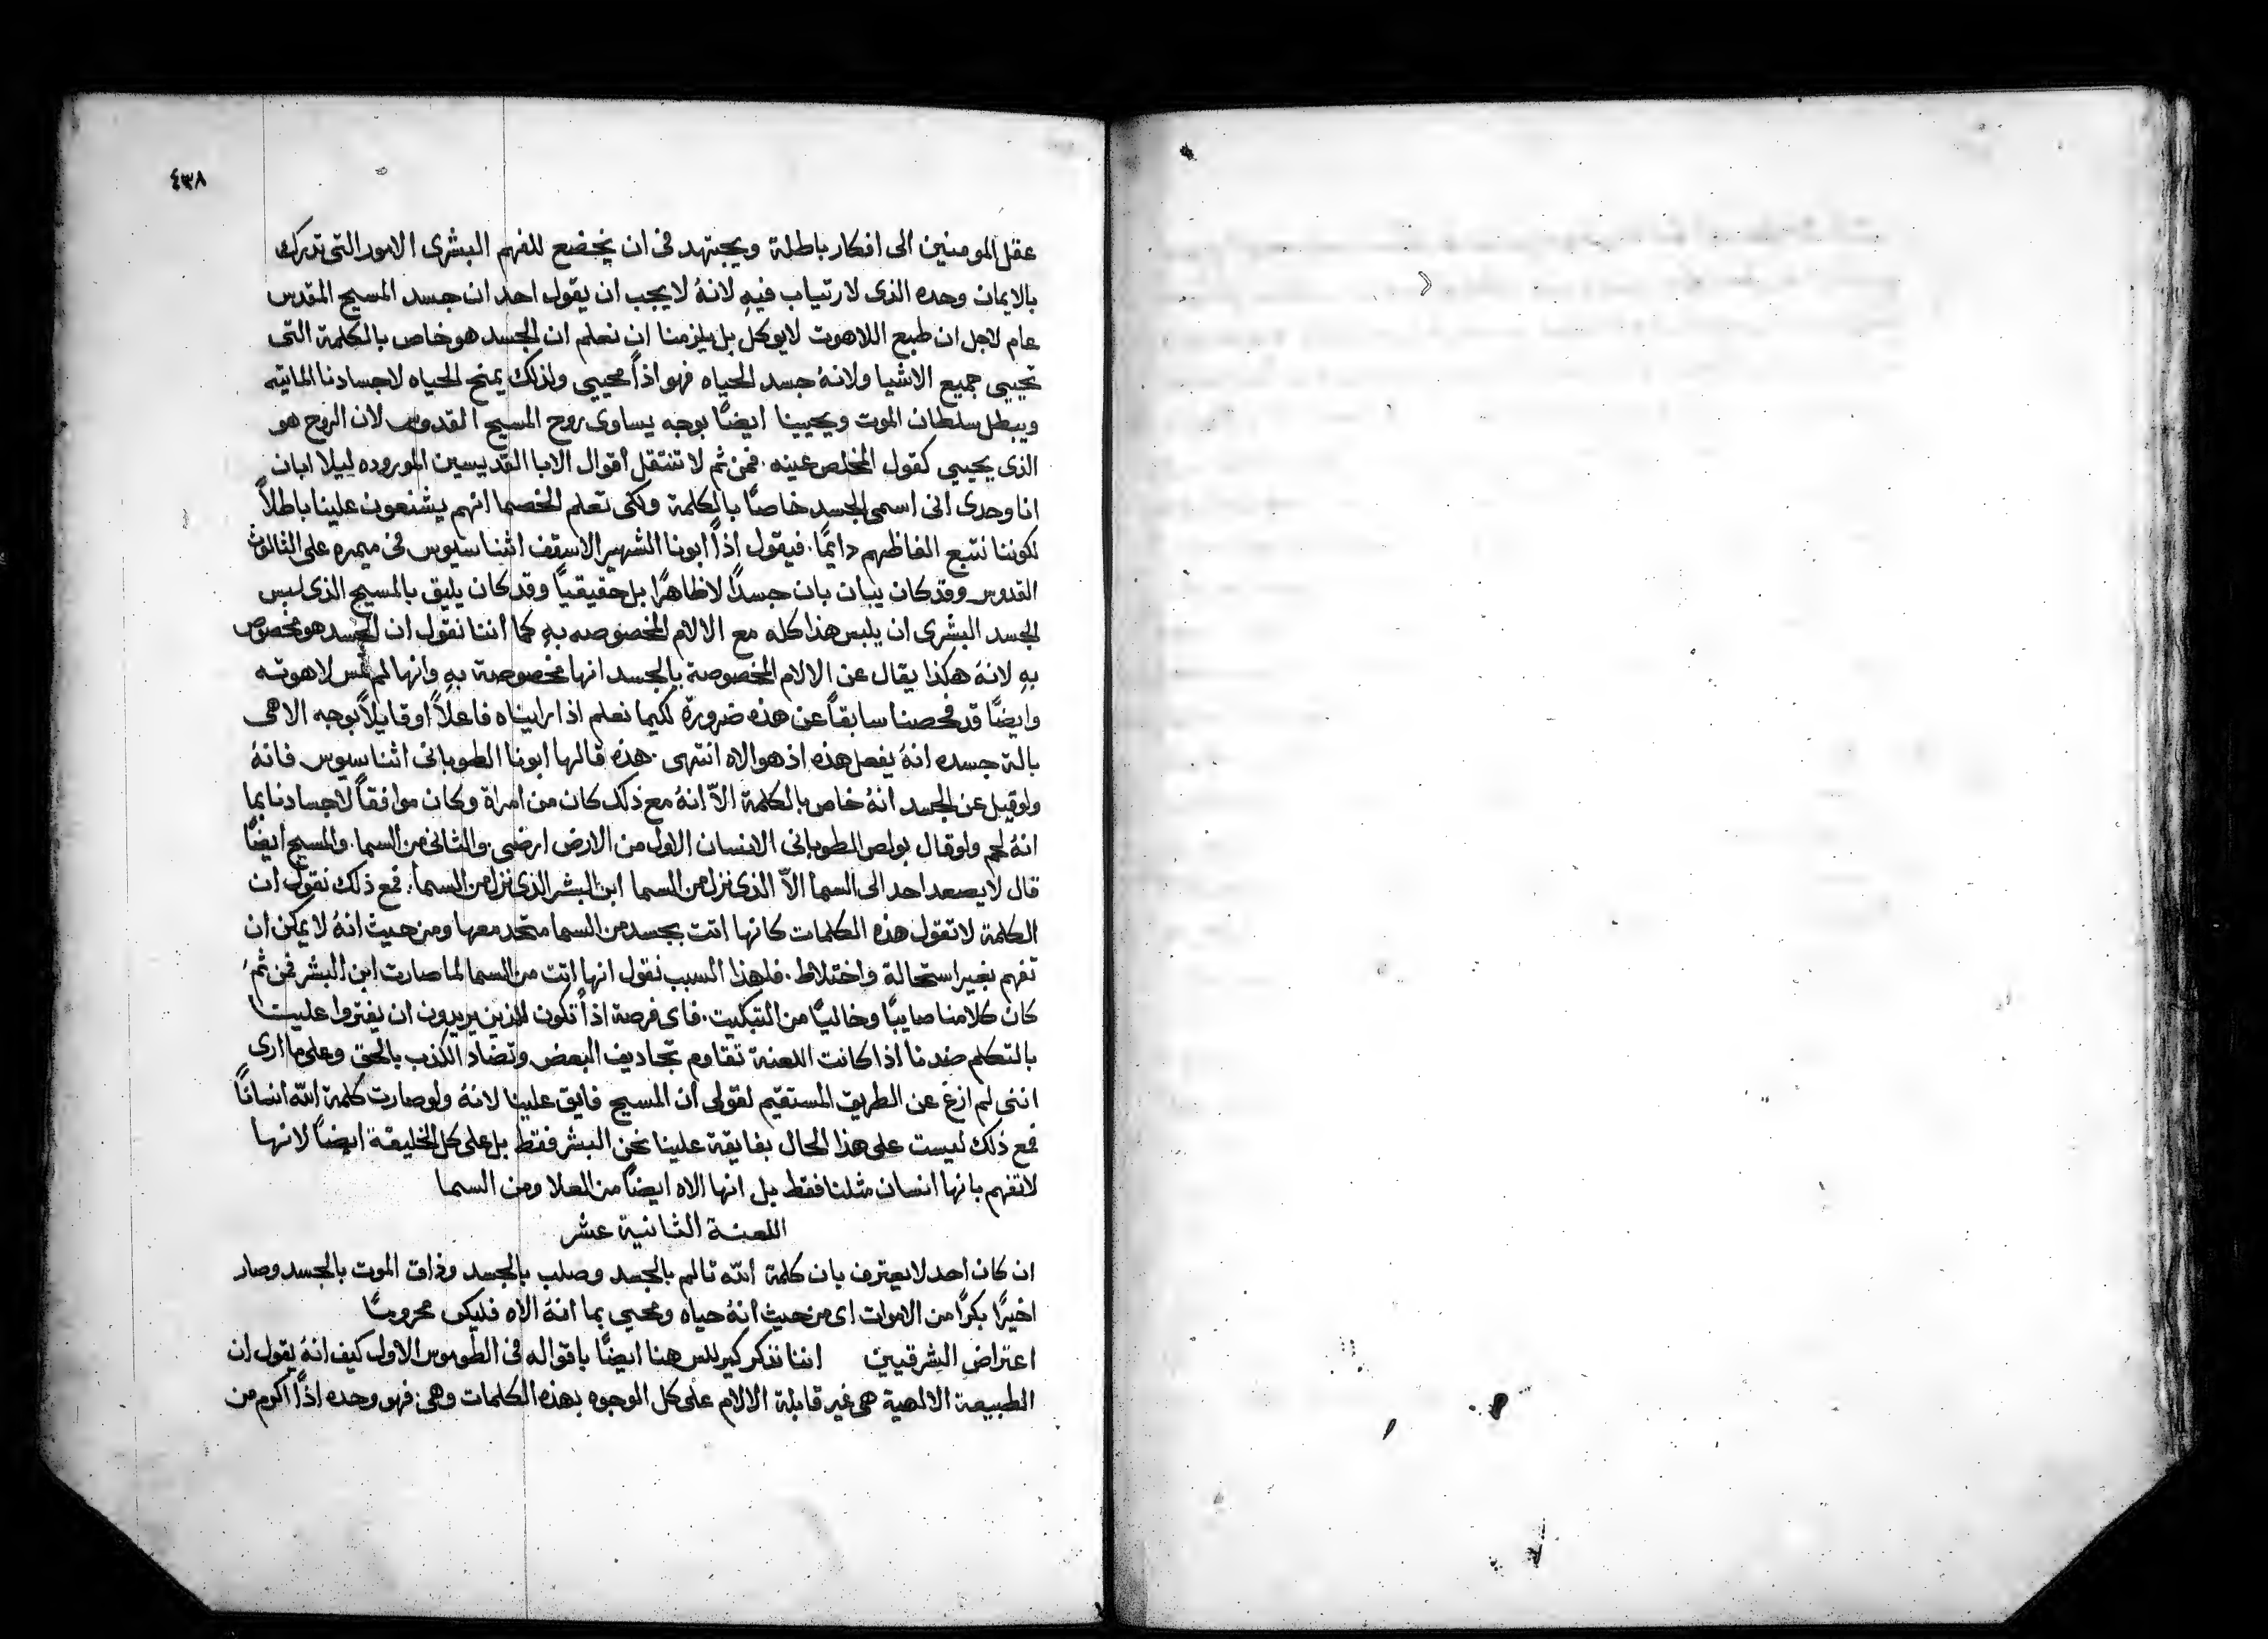 ٤٣٨
عقل المومنين الى افكار باطلة ويجتهد فى ان يخضع للفهم البشرى الامور التى تدرك
بالايمان وحده الذى لا رتياب فيهِ لانهُ لا يجب ان يقول احد ان جسد المسيح المقدس
عام لاجل ان طبع اللاهوت لا يوكل بل يلزمنا ان نعلم ان الجسد هو خاص بالكلمة التى
تحيى جميع الاشيا ولانهُ جسد الحياه فهو اذاً محيى ولذلك يمنح الحياه لاجسادنا المايته
ويبطل سلطان الموت ويحيينا ايضًا بوجه يساوى روح المسيح القدوس لان الروح هو
الذى يحيى كقول المخلص عينه . فمن ثم لا تنثقل اقوال الابا القديسين الموروده ليلا ابان
انا وحدى انى اسمى الجسد خاصًا بالكلمة ولكى تعلم الخصما انهم يشنعون علينا باطلاً
لكوننا نتبع الفاظهم دايمًا . فيقول اذاً ابونا الشهير الاسقف اثناسيوس فى ميمره على الثالوث
القدوس وقد كان يبان بان جسدًا لا ظاهرًا بل حقيقيًا وقد كان يليق بالمسيح الذى لبس
الجسد البشرى ان يلبس هذا كله مع الالام المخصوصه بهِ كما اننا نقول ان الجسد هو مخصوص
بهِ لانهُ هكذا يقال عن الالام المخصوصة بالجسد انها مخصوصة بهِ وانها لم تمس لاهوته
وايضًا قد فحصنا سابقاً عن هذه ضرورة لكيما نعلم اذا رايناه فاعلاً او قايلاً بوجه الاهى
بالة جسده انهُ يفعل هذه اذ هو الاه انتهى . هذه قالها ابونا الطوبانى اثناسيوس فانهُ
ولو قيل عن الجسد انهُ خاص بالكلمة الاّ انهُ مع ذلك كان من امراة وكان موافقاً لاجسادنا بما
انهُ لحم ولو قال بولص الطوبانى الانسان الاول من الارض ارضى والثانى من السما . والمسيح ايضًا
قال لا يصعد احد الى السما الاّ الذى نزل من السما ابن البشر الذى نزل من السما . فمع ذلك نقول ان
الكلمة لا تقول هذه الكلمات كانها اتت بجسد من السما متحد معها ومن حيث انهُ لا يمكن ان
تفهم بغير استحالة واختلاط . فلهذا السبب نقول انها اتت من السما لما صارت ابن البشر فمن ثم
كان كلامنا صايبًا وخاليًا من التبكيت . فاى فرصة اذاً تكون للذين يريدون ان يفتروا علينا
بالتكلم ضدنا اذا كانت اللعنة تقاوم تجاديف البعض وتضاد الكذب بالحق وعلى ما ارى
اننى لم ازغ عن الطريق المستقيم لقولى ان المسيح فايق علينا لانهُ ولو صارت كلمة الله انسانًا
فمع ذلك ليست على هذا الحال بفايقة علينا نحن البشر فقط بل على كل الخليقة ايضاً لانها
لا تفهم بانها انسان مثلنا فقط بل انها الاه ايضاً من العلا ومن السما
اللعنة الثانية عشر
ان كان احد لا يعترف بان كلمة الله تالم بالجسد وصلب بالجسد وذاق الموت بالجسد وصار
اخيرًا بكرًا من الاموات اى من حيث انهُ حياه ومحيى بما انهُ الاه فليكن محرومًا
اعتراض الشرقيين اننا نذكر كيرللس هنا ايضًا باقواله فى الطوموس الاول كيف انهُ يقول ان
الطبيعة الالهية هى غير قابلة الالام على كل الوجوه بهذه الكلمات وهى . فهو وحده اذًا اكرم من